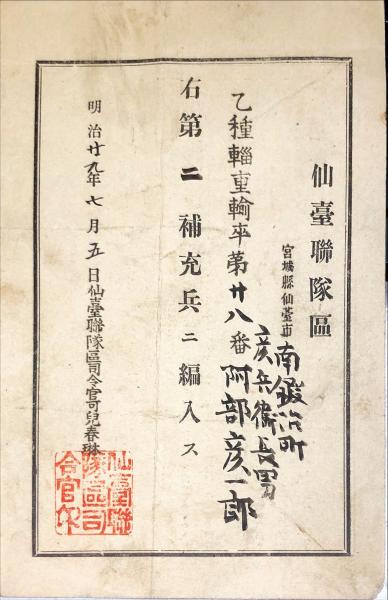 仙臺聯隊區
宮城縣仙臺市南鍛冶町
彦兵衞長男
乙種輜重輸卒第廿八番阿部彦一郎
右第二補充兵ニ編入ス
明治廿九年七月五日仙臺聯隊區司令官可兒春琳
仙臺聯
隊區司
令官印